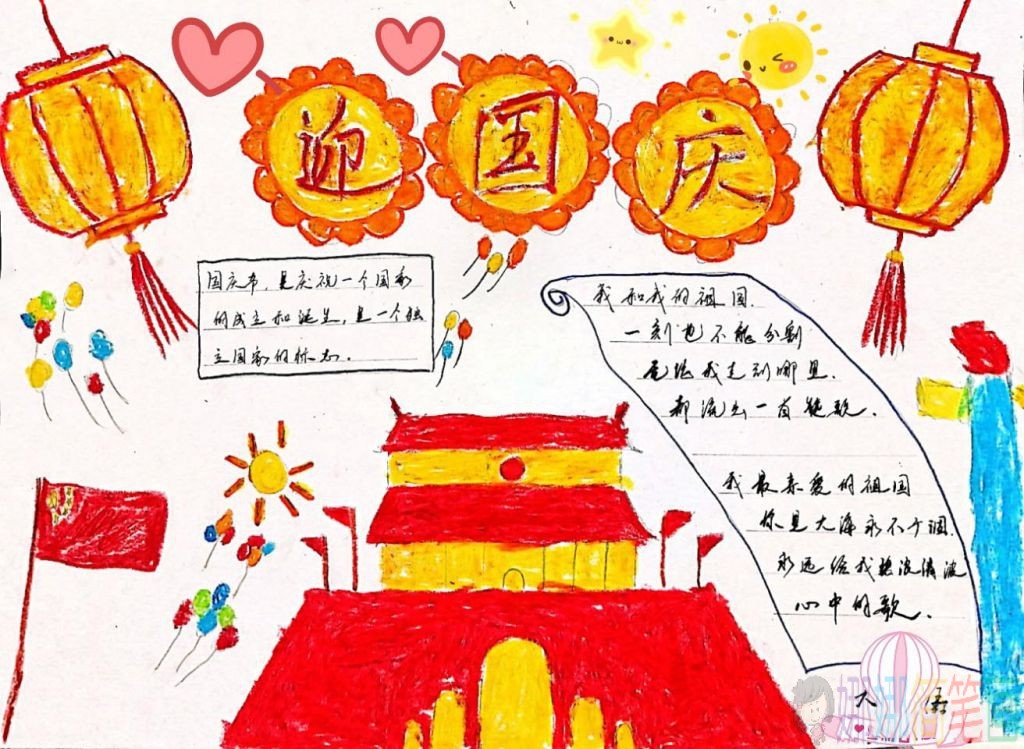 迎国庆
国庆节，是庆祝一个国家
的成立和诞生，是一个独
立国家的标志．
我和我的祖国．
一刻也不能分割
无论我走到哪里．
都流出一首赞歌．
我最亲爱的祖国
你是大海永不干涸．
永远给我碧浪清波
心中的歌．
娜娜简笔